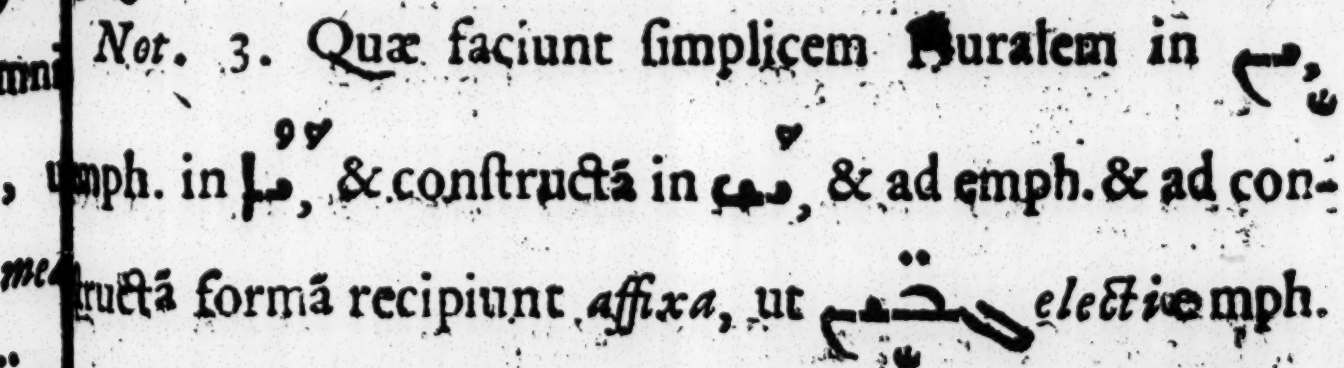 Not. 3. Quæ faciunt ſimplicem Pluralem in ܝܺܢ,
emph. in ܰܝܳܐ, & conſtructã in ܰܝ, & ad emph. & ad con-
ſtructã formã recipiunt affixa, ut ܓܒ̈ܝܺܢ electi emph.